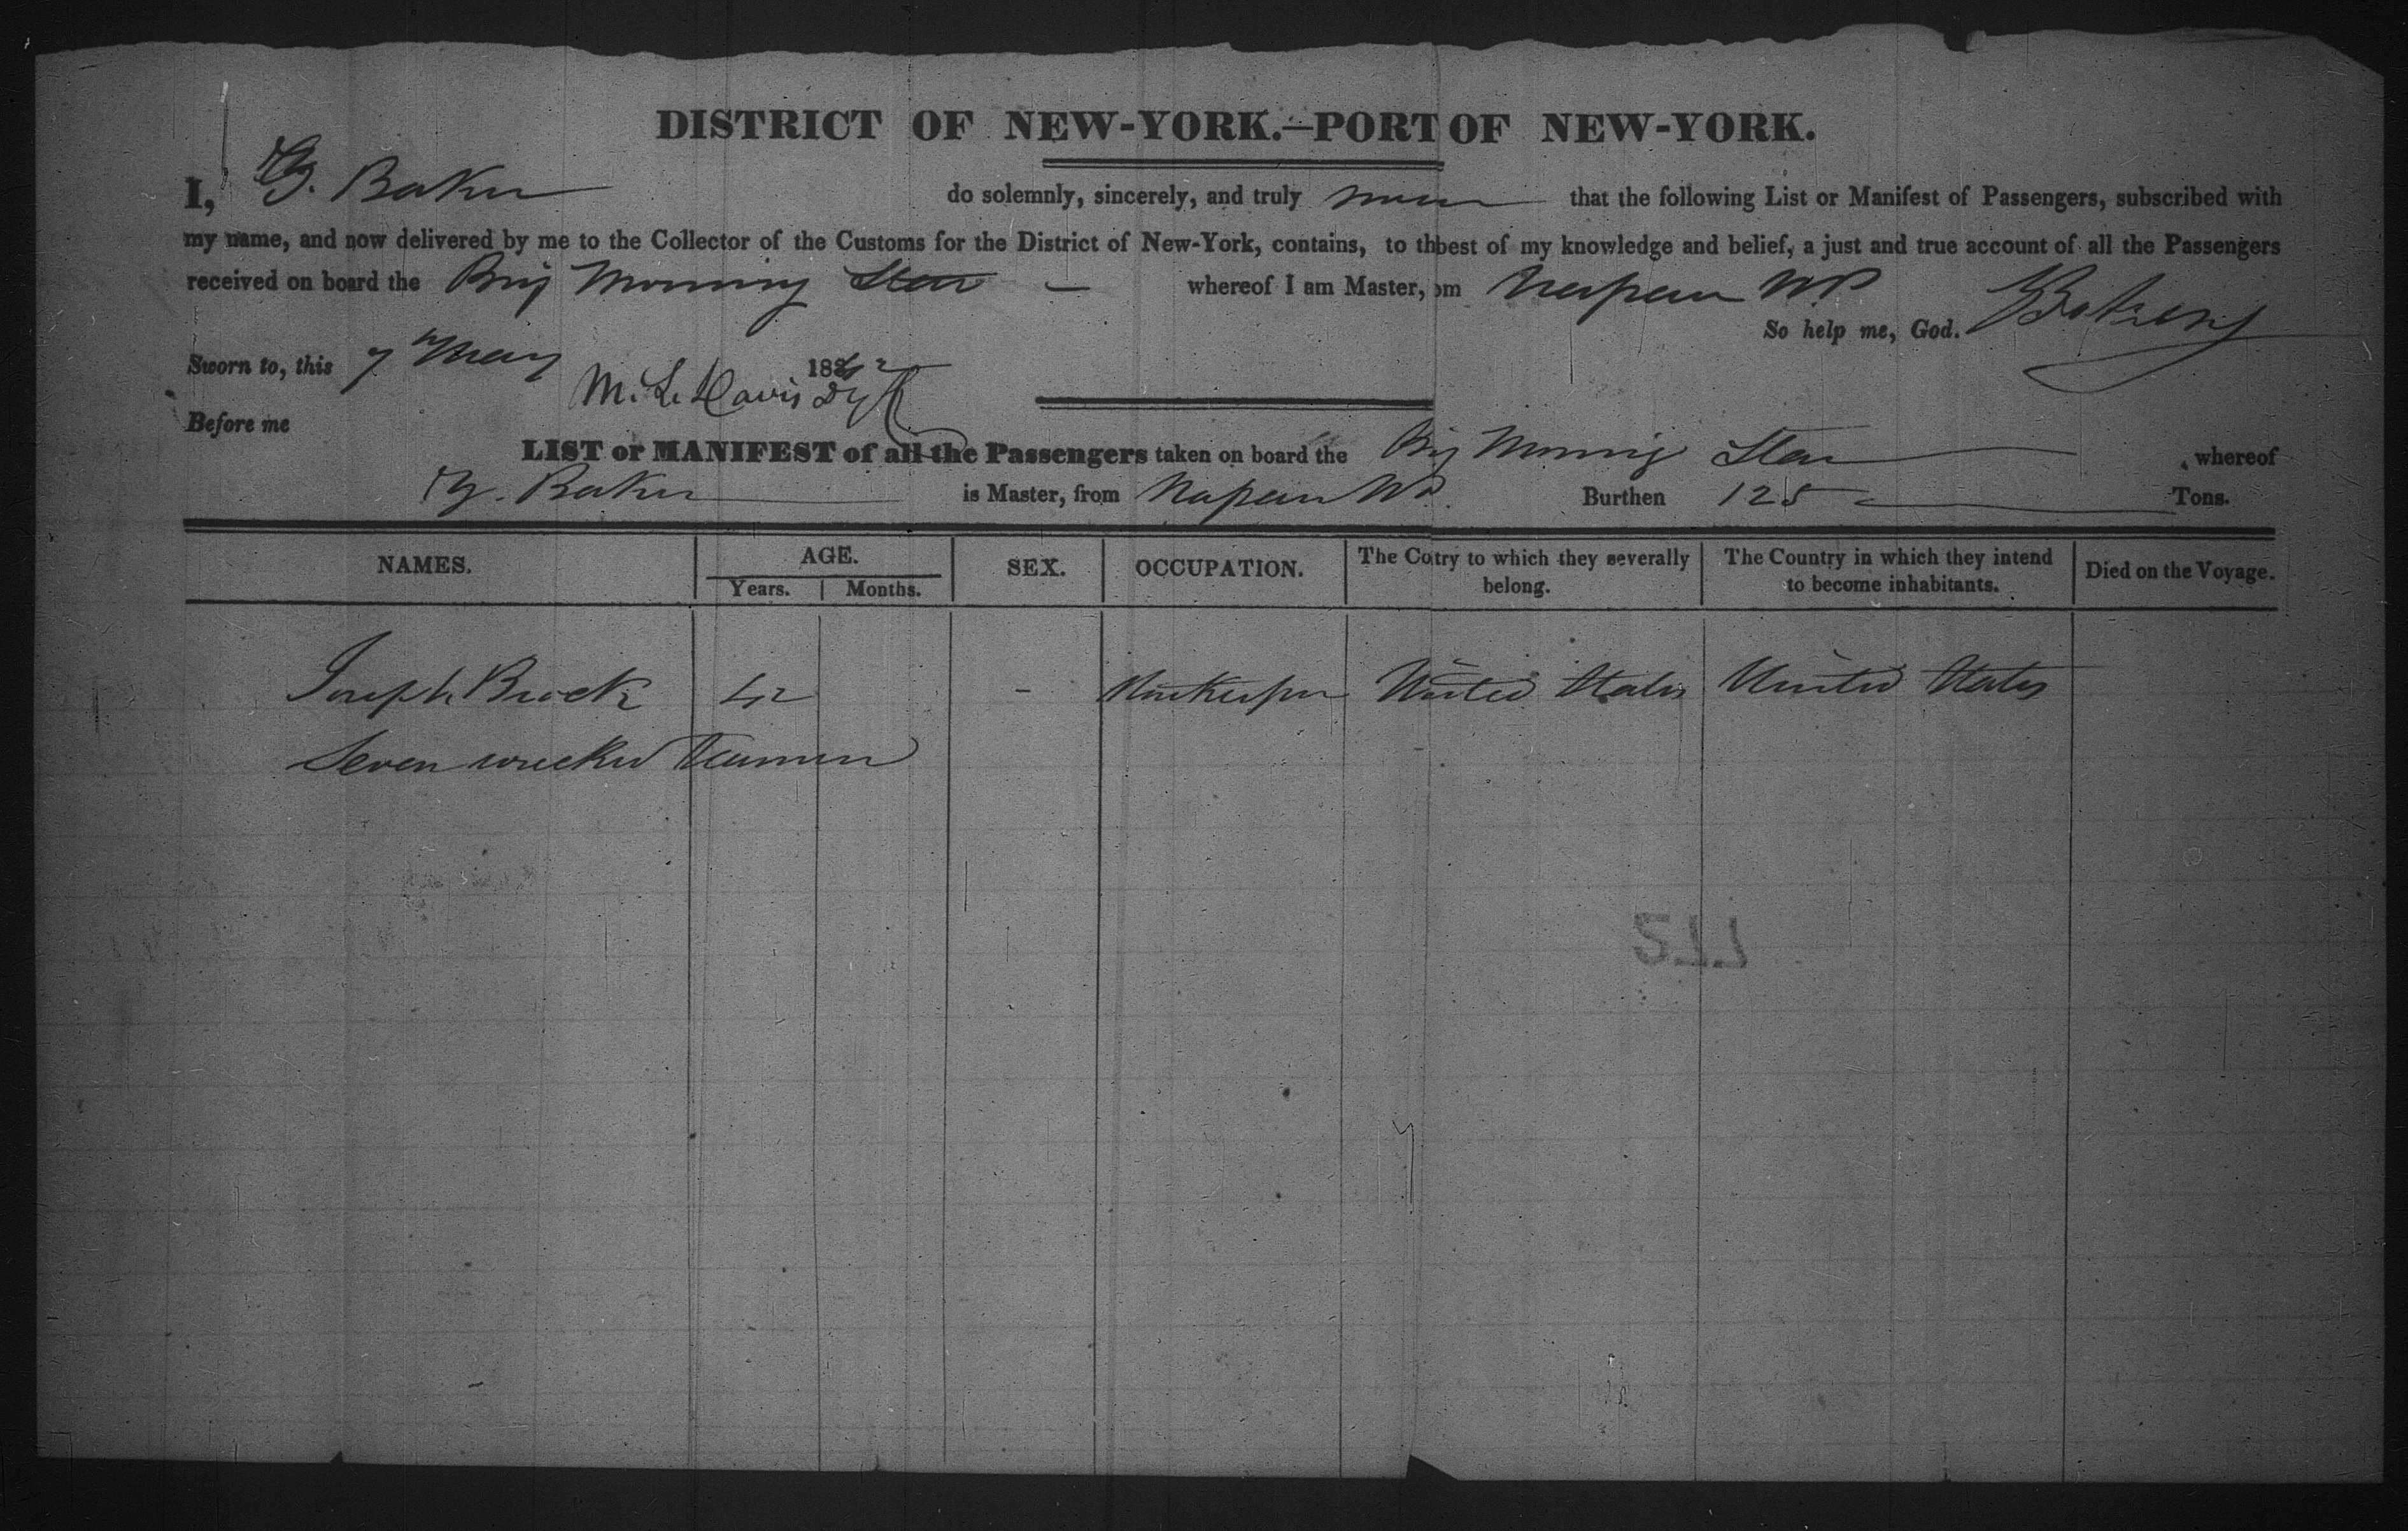 DISTRICT OF NEW-YORK.—PORT OF NEW-YORK.
I, G. Baker do solemnly, sincerely, and truly swear that the following List or Manifest of Passengers, subscribed with
my name, and now delivered by me to the Collector of the Customs for the District of New-York, contains, to th best of my knowledge and belief, a just and true account of all the Passengers
received on board the Brig Morning Star whereof I am Master, om Nassau NP
So help me, God.
Sworn to, this 7th May 1842
M. L. Davis
Before me
LIST or MANIFEST of all the Passengers taken on board the Brig Morning Star , whereof
G. Baker is Master, from Nassau NP. Burthen 125 Tons.
NAMES. AGE. SEX. OCCUPATION. The Co try to which they severally belong. The Country in which they intend to become inhabitants. Died on the Voyage.
Years. Months.
Joseph Brock 42 - United States United States
Seven wrecked Seamen